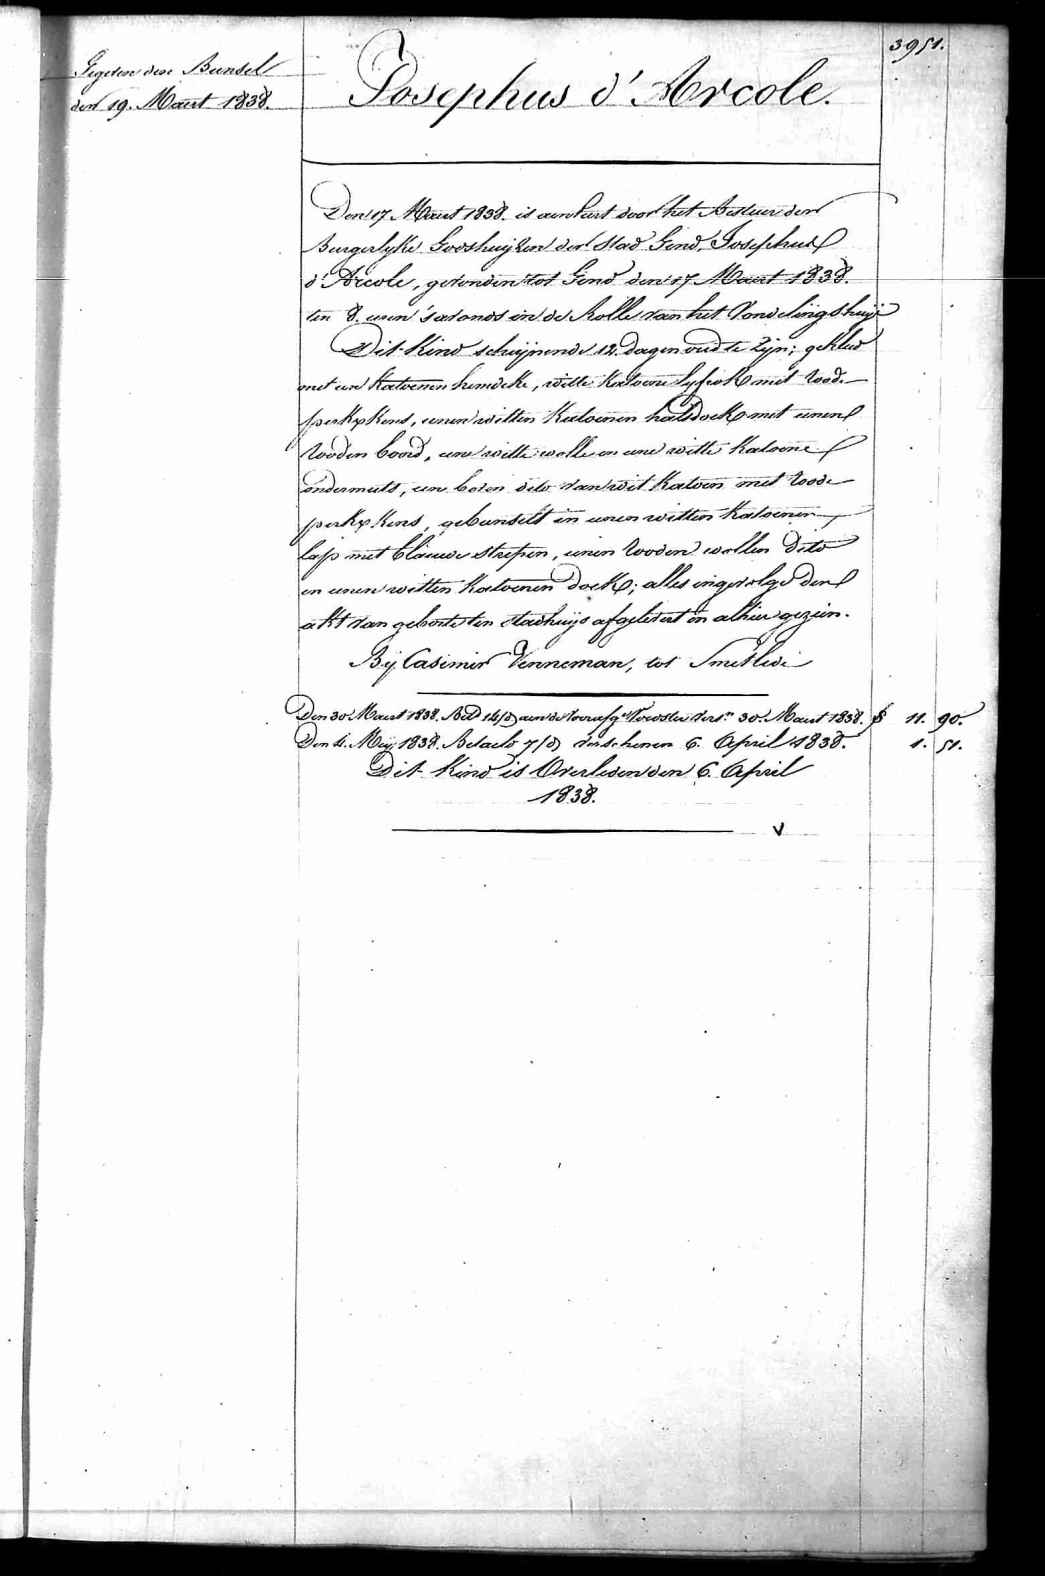 3951.
Gegeven den Bunsel
den 19. Maert 1838.
Josephus d'Arcole.
Den 17 Maert 1838. is aenveirt door het Bestuer der
Burgerlyke Godshuijzen der Stad Gend, Josephus
d'Arcole, gevonden tot Gend den 17 Maert 1838.
ten 8. uren 's avonds in de Rolle van het Vondelingshuijs
Dit Kind schijnende 12. dagen oud te zijn; gekleed
met een Katoenen hemdeke, witte Katoene lyfrok met roode
perkxkens, eenen witten Katoenen halsdoek met eenen
rooden boord, eene witte wolle en eene witte Katoene
ondermuts, een boven dito van wit Katoen met roode
perkxkens, gebunselt in eenen witten Katoenen
lap met blauwe strepen, eenen rooden wollen dito
en eenen witten Katoenen doek; alles ingevolge den
akt van geboorte ten stadhuijs afgelevert en alhier gezien.
Bij Casimir Venneman, tot Smetlede
Den 30 Maert 1838. Bet 14/d aen de voorafg.e Voedster vers.n 30. Maert 1838. f 11. 90.
Den 4. Meij 1838. Betaelt 7/d verschenen 6. April 1838. 1. 51.
Dit Kind is Overleden den 6. April
1838.
V